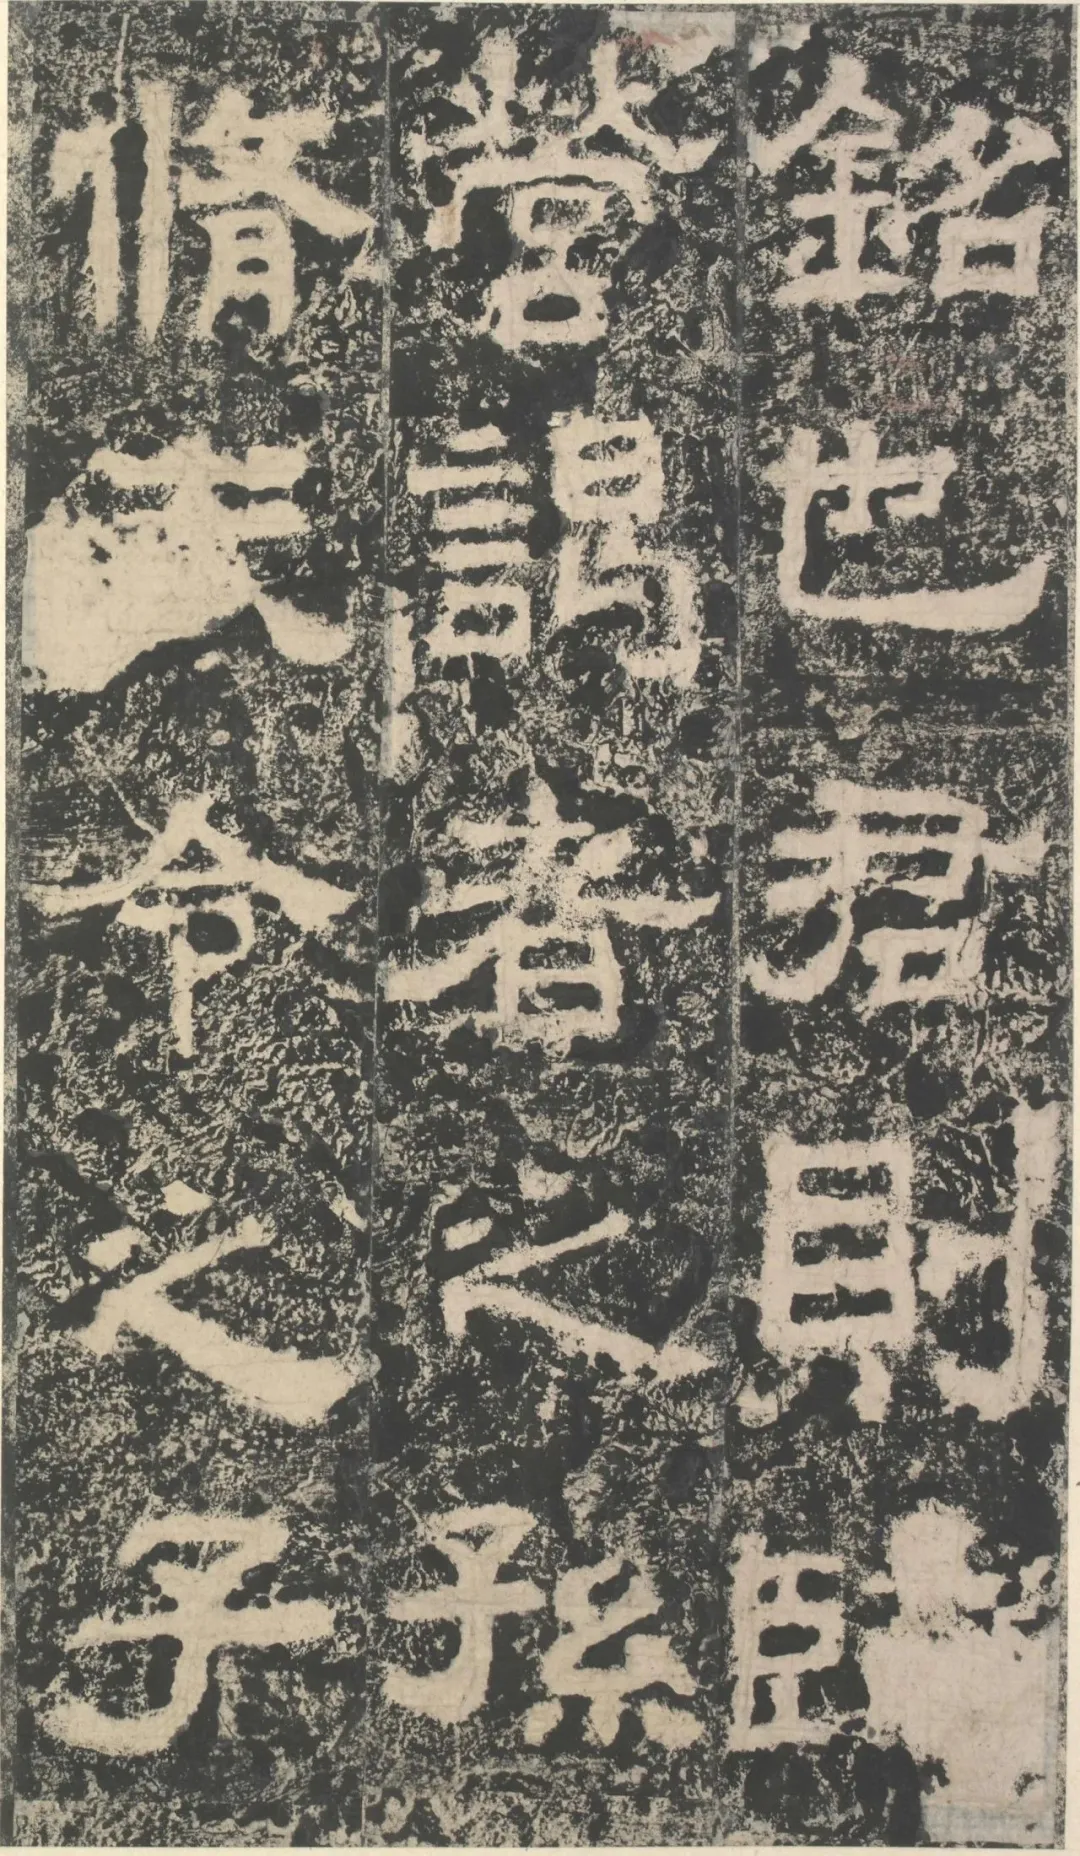 銘也君則監
營謁者之孫
脩武令之子